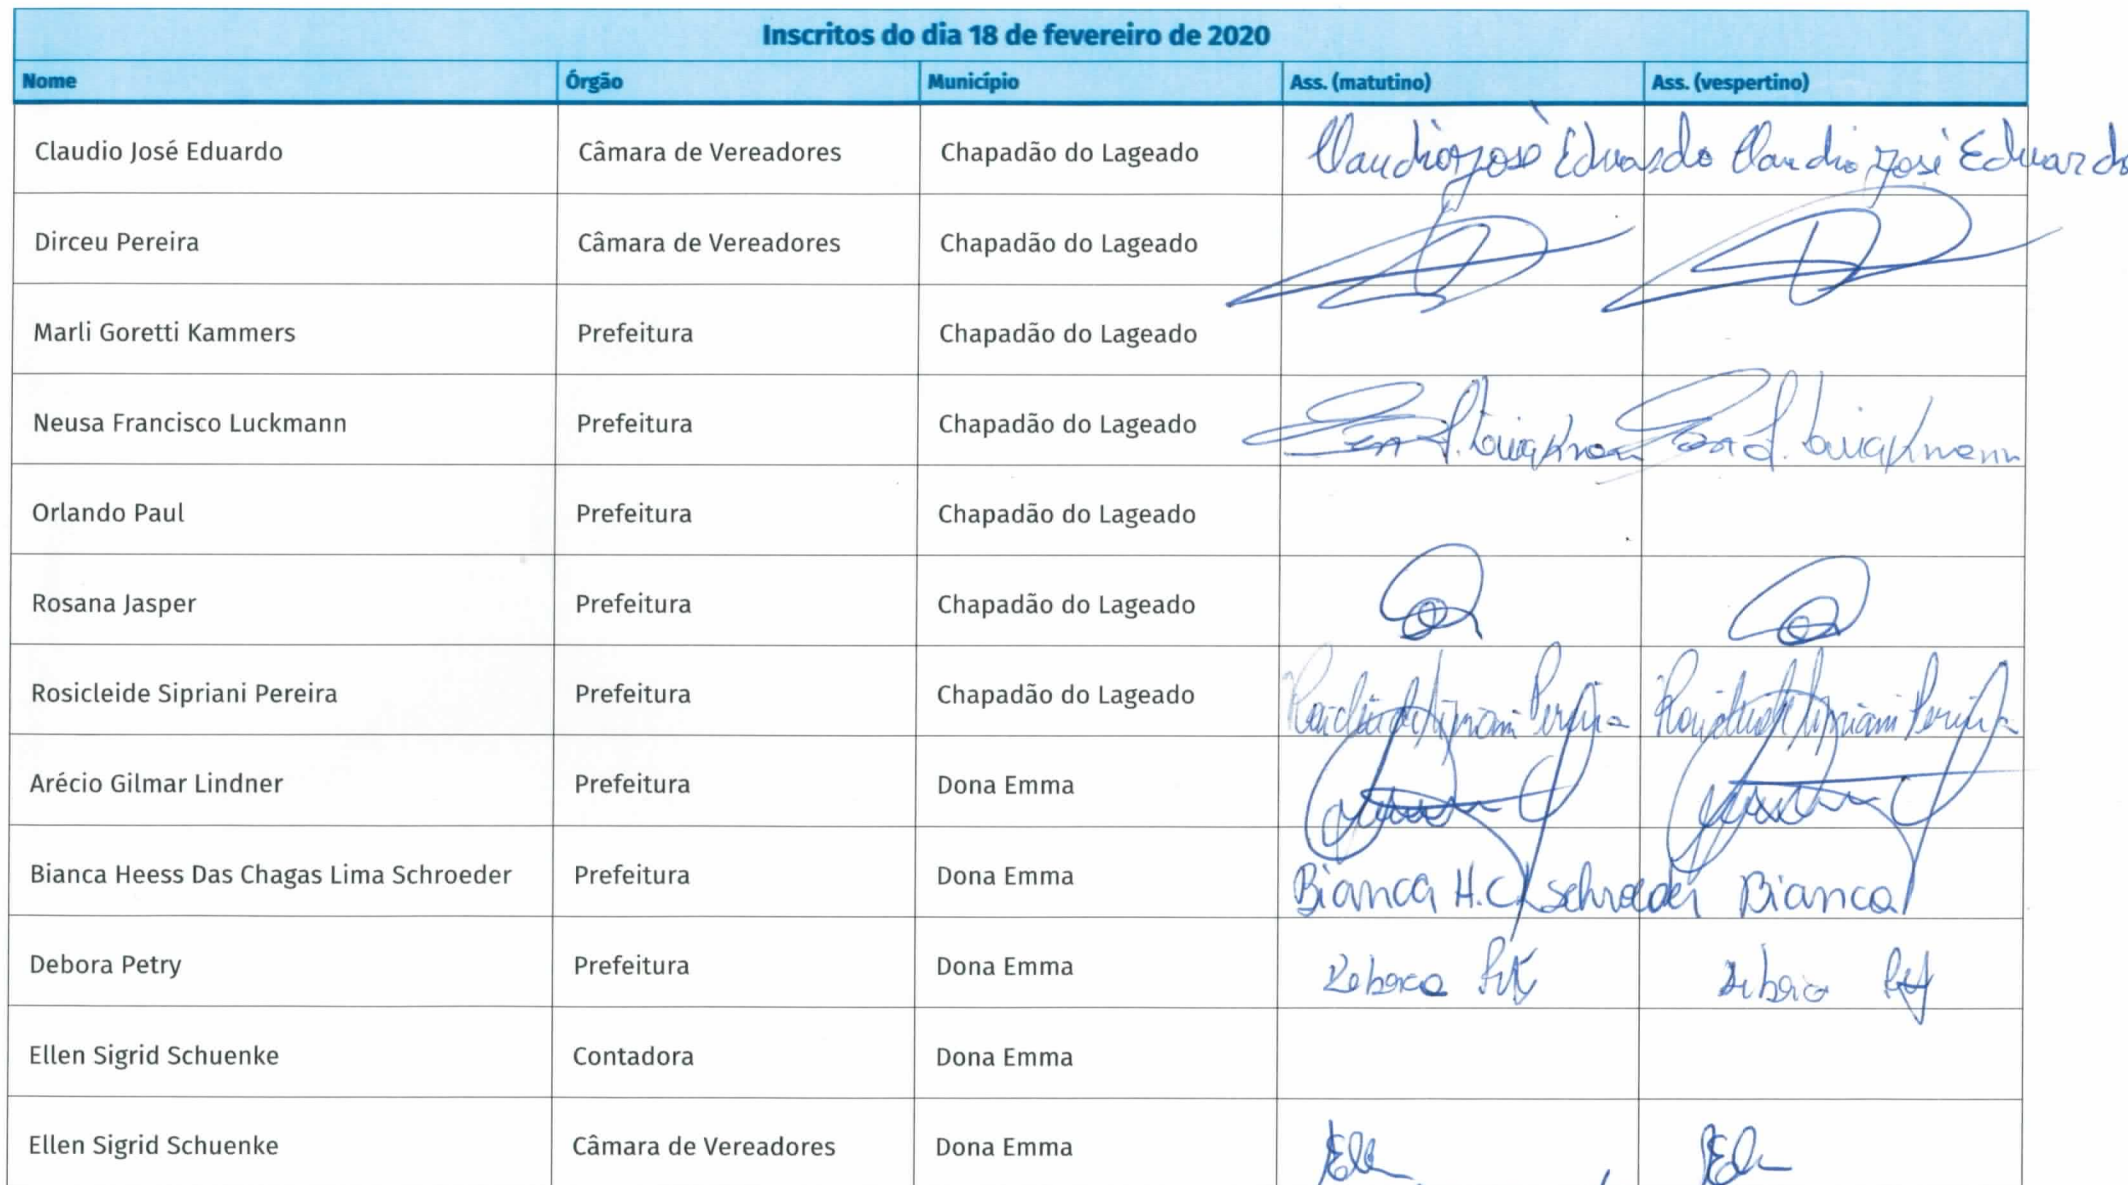 Inscritos do dia 18 de fevereiro de 2020
Nome Órgão Município Ass. (matutino) Ass. (vespertino)
Claudio José Eduardo Câmara de Vereadores Chapadão do Lageado Claudio José Eduardo Claudio José Eduardo
Dirceu Pereira Câmara de Vereadores Chapadão do Lageado
Marli Goretti Kammers Prefeitura Chapadão do Lageado
Neusa Francisco Luckmann Prefeitura Chapadão do Lageado
Orlando Paul Prefeitura Chapadão do Lageado
Rosana Jasper Prefeitura Chapadão do Lageado
Rosicleide Sipriani Pereira Prefeitura Chapadão do Lageado Rosicleide Sipriani Pereira Rosicleide Sipriani Pereira
Arécio Gilmar Lindner Prefeitura Dona Emma
Bianca Heess Das Chagas Lima Schroeder Prefeitura Dona Emma Bianca H.C.L Schroeder Bianca
Debora Petry Prefeitura Dona Emma Debora Debora
Ellen Sigrid Schuenke Contadora Dona Emma
Ellen Sigrid Schuenke Câmara de Vereadores Dona Emma